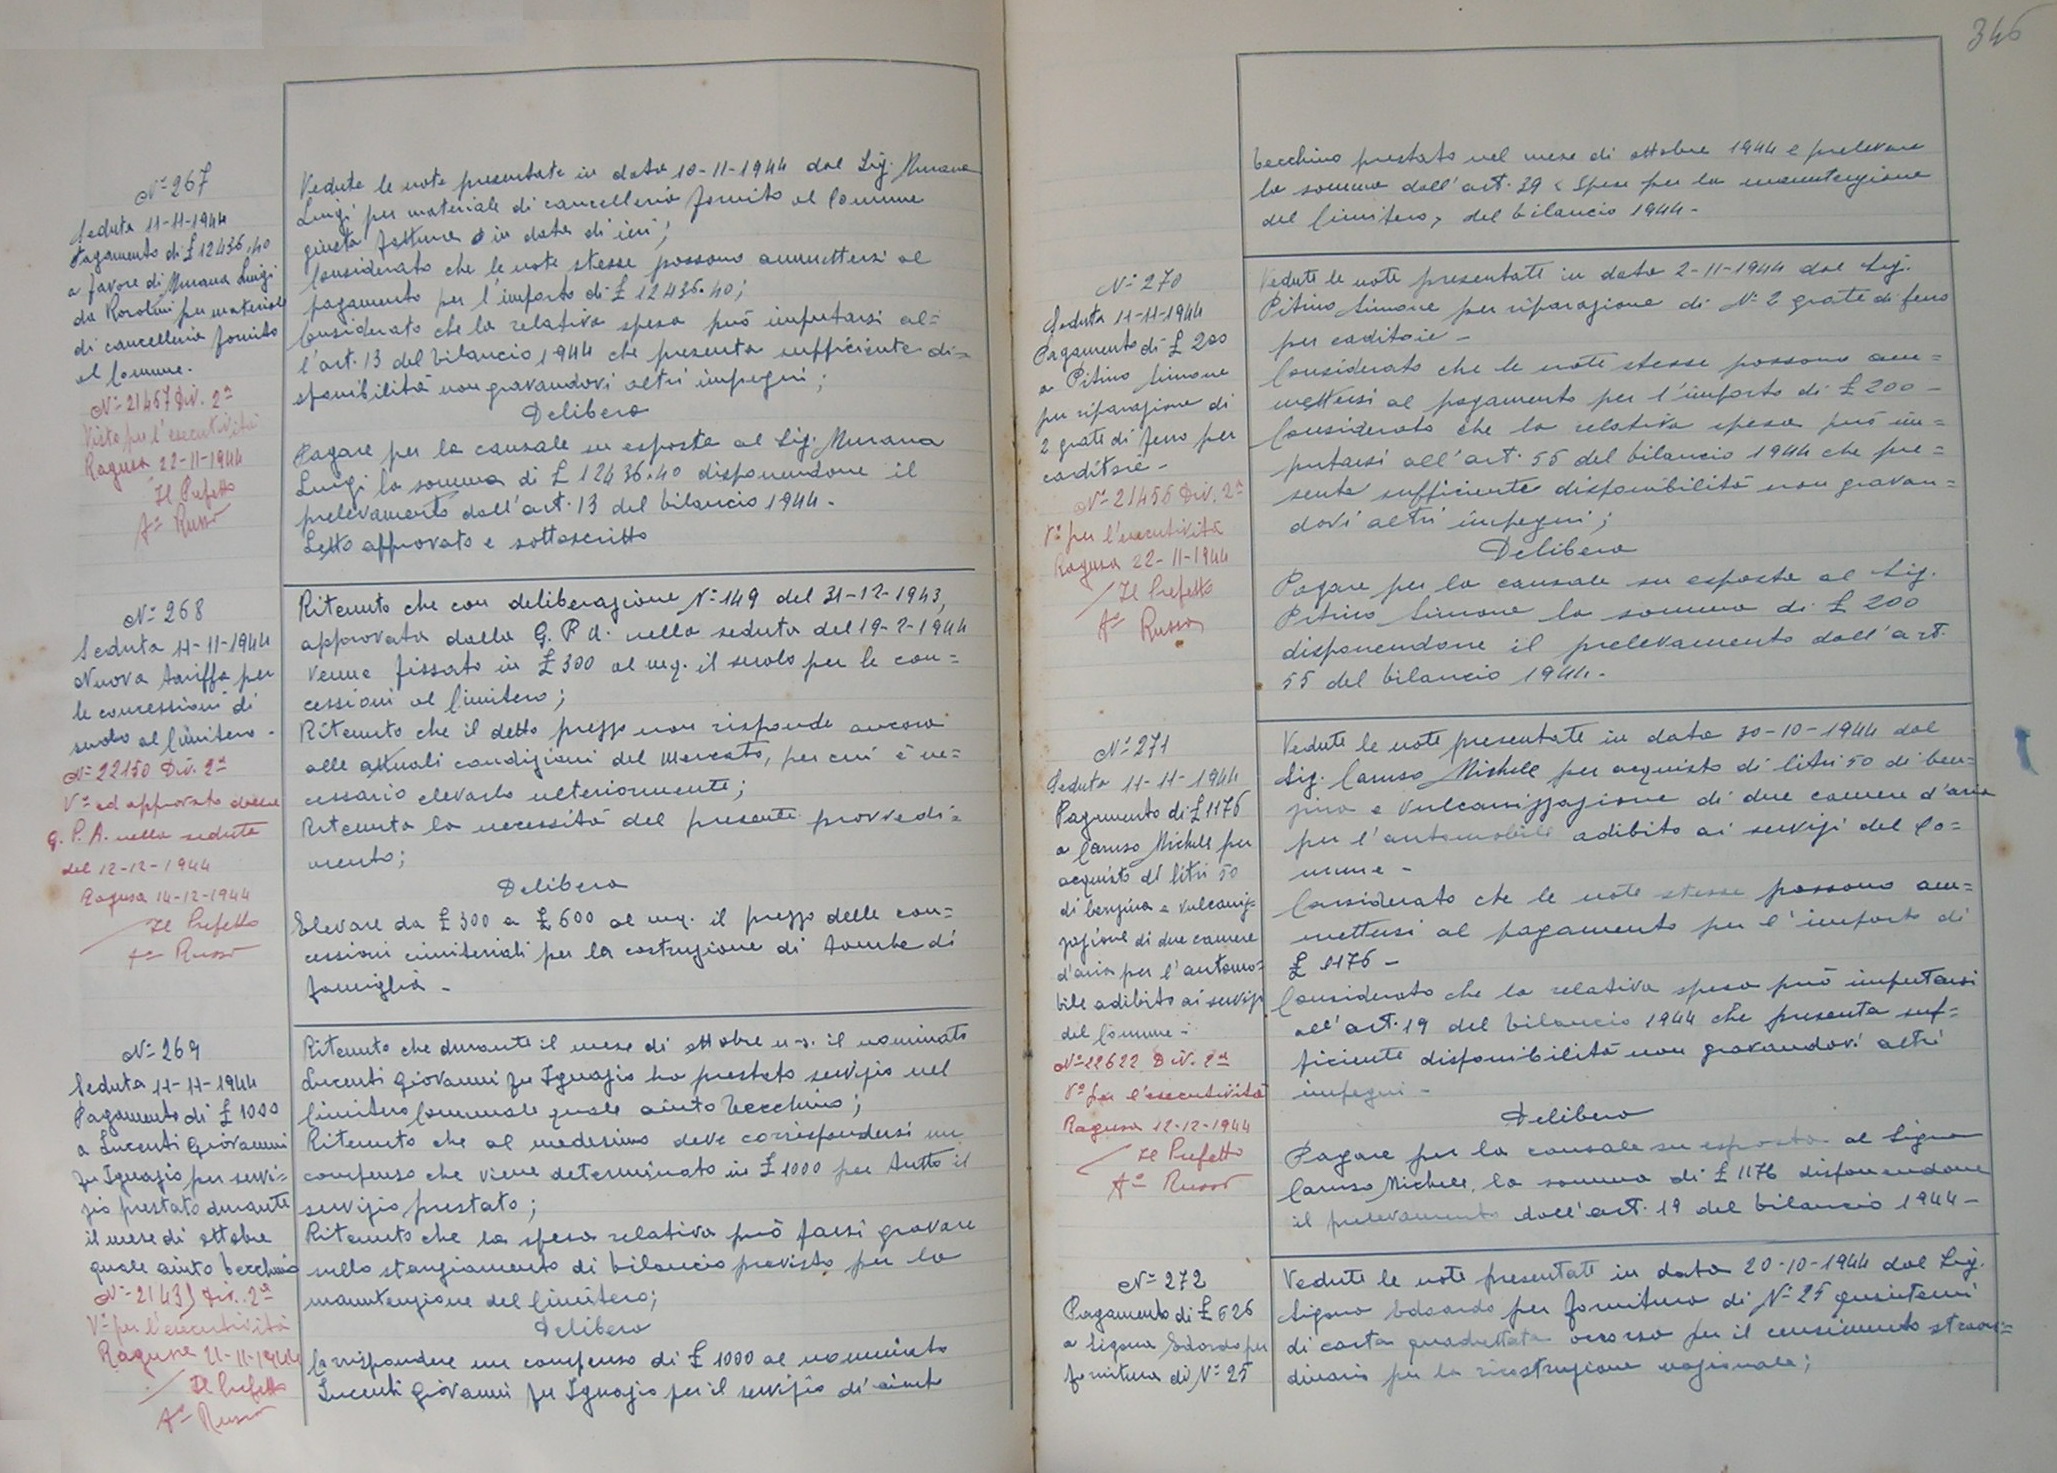 N° 267
Seduta 11-11-1944
Pagamento di £ 12436.40
a favore di Murana Luigi
da Rosolini per materiale
di cancelleria fornito
al Comune.
N° 21457 Div. 2ª
Visto per l'esecutività
Ragusa 22-11-1944
Il Prefetto
Fto Russo
Vedute le note presentate in data 10-11-1944 dal Sig. Murana
Luigi per materiale di cancelleria fornito al Comune
giusta fattura in data di ieri;
Considerato che le note stesse possono ammettersi al
pagamento per l'importo di £ 12436.40;
Considerato che la relativa spesa può imputarsi al=
l'art. 13 del bilancio 1944 che presenta sufficiente di=
sponibilità non gravandovi altri impegni;
Delibera
Pagare per la causale su esposta al Sig. Murana
Luigi la somma di £ 12436.40 disponendone il
prelevamento dall'art. 13 del bilancio 1944.
Letto approvato e sottoscritto
N° 268
Seduta 11-11-1944
Nuova tariffa per
le concessioni di
suolo al Cimitero -
N° 22150 Div. 2ª
V° ed approvato dalla
G. P. A. nella seduta
del 12-12-1944
Ragusa 14-12-1944
Il Prefetto
Fto Russo
Ritenuto che con deliberazione N° 149 del 31-12-1943,
approvata dalla G. P. A. nella seduta del 19-2-1944
venne fissato in £ 300 al mq. il suolo per le con=
cessioni al Cimitero;
Ritenuto che il detto prezzo non risponde ancora
alle attuali condizioni del mercato, per cui è ne=
cessario elevarlo ulteriormente;
Ritenuta la necessità del presente provvedi=
mento;
Delibera
Elevare da £ 300 a £ 600 al mq. il prezzo delle con=
cessioni cimiteriali per la costruzione di tombe di
famiglia -
N° 269
Seduta 11-11-1944
Pagamento di £ 1000
a Lucenti Giovanni
fu Ignazio per servi=
zio prestato durante
il mese di ottobre
quale aiuto becchino
Div. 2ª
V° per l'esecutività
Ragusa 21-11-1944
Il Prefetto
Fto Russo
Ritenuto che durante il mese di ottobre u.s. il nominato
Lucenti Giovanni fu Ignazio ha prestato servizio nel
Cimitero Comunale quale aiuto becchino;
Ritenuto che al medesimo deve corrispondersi un
compenso che viene determinato in £ 1000 per tutto il
servizio prestato;
Ritenuto che la spesa relativa può farsi gravare
sullo stanziamento di bilancio previsto per la
manutenzione del Cimitero;
Delibera
Corrispondere un compenso di £ 1000 al nominato
Lucenti Giovanni fu Ignazio per il servizio di aiuto
346
becchino prestato nel mese di ottobre 1944 e prelevare
la somma dall'art. 39 « Spese per la manutenzione
del Cimitero, del bilancio 1944 -
N° 270
Seduta 11-11-1944
Pagamento di £ 200
a Pitino Simone
per riparazione di
2 grate di ferro per
caditoie -
N° 21455 Div. 2ª
V° per l'esecutività
Ragusa 22-11-1944
Il Prefetto
Fto Russo
Vedute le note presentate in data 2-11-1944 dal Sig.
Pitino Simone per riparazione di N° 2 grate di ferro
per caditoie -
Considerato che le note stesse possono am=
mettersi al pagamento per l'importo di £ 200 -
Considerato che la relativa spesa può im=
putarsi all'art. 55 del bilancio 1944 che pre=
senta sufficiente disponibilità non gravan=
dovi altri impegni;
Delibera
Pagare per la causale su esposta al Sig.
Pitino Simone la somma di £ 200
disponendone il prelevamento dall'art.
55 del bilancio 1944.
N° 271
Seduta 11-11-1944
Pagamento di £ 1176
a Caruso Michele per
acquisto di litri 50
di benzina e vulcaniz=
zazione di due camere
d'aria per l'automo=
bile adibito ai servizi
del Comune -
N° 22622 Div. 2ª
V° per l'esecutività
Ragusa 12-12-1944
Il Prefetto
Fto Russo
Vedute le note presentate in data 30-10-1944 dal
Sig. Caruso Michele per acquisto di litri 50 di ben=
zina e vulcanizzazione di due camere d'aria
per l'automobile adibito ai servizi del Co=
mune -
Considerato che le note stesse possono am=
mettersi al pagamento per l'importo di
£ 1176 -
Considerato che la relativa spesa può imputarsi
all'art. 19 del bilancio 1944 che presenta suf=
ficiente disponibilità non gravandovi altri
impegni -
Delibera
Pagare per la causale su esposta al Signor
Caruso Michele, la somma di £ 1176 disponendone
il prelevamento dall'art. 19 del bilancio 1944 -
N° 272
Pagamento di £ 626
a Ligona Edoardo per
fornitura di N° 25
Vedute le note presentate in data 20-10-1944 dal Sig.
Ligona Edoardo per fornitura di N° 25 quinterni
di carta quadrettata occorsa per il censimento straor=
dinario per la ricostruzione nazionale;